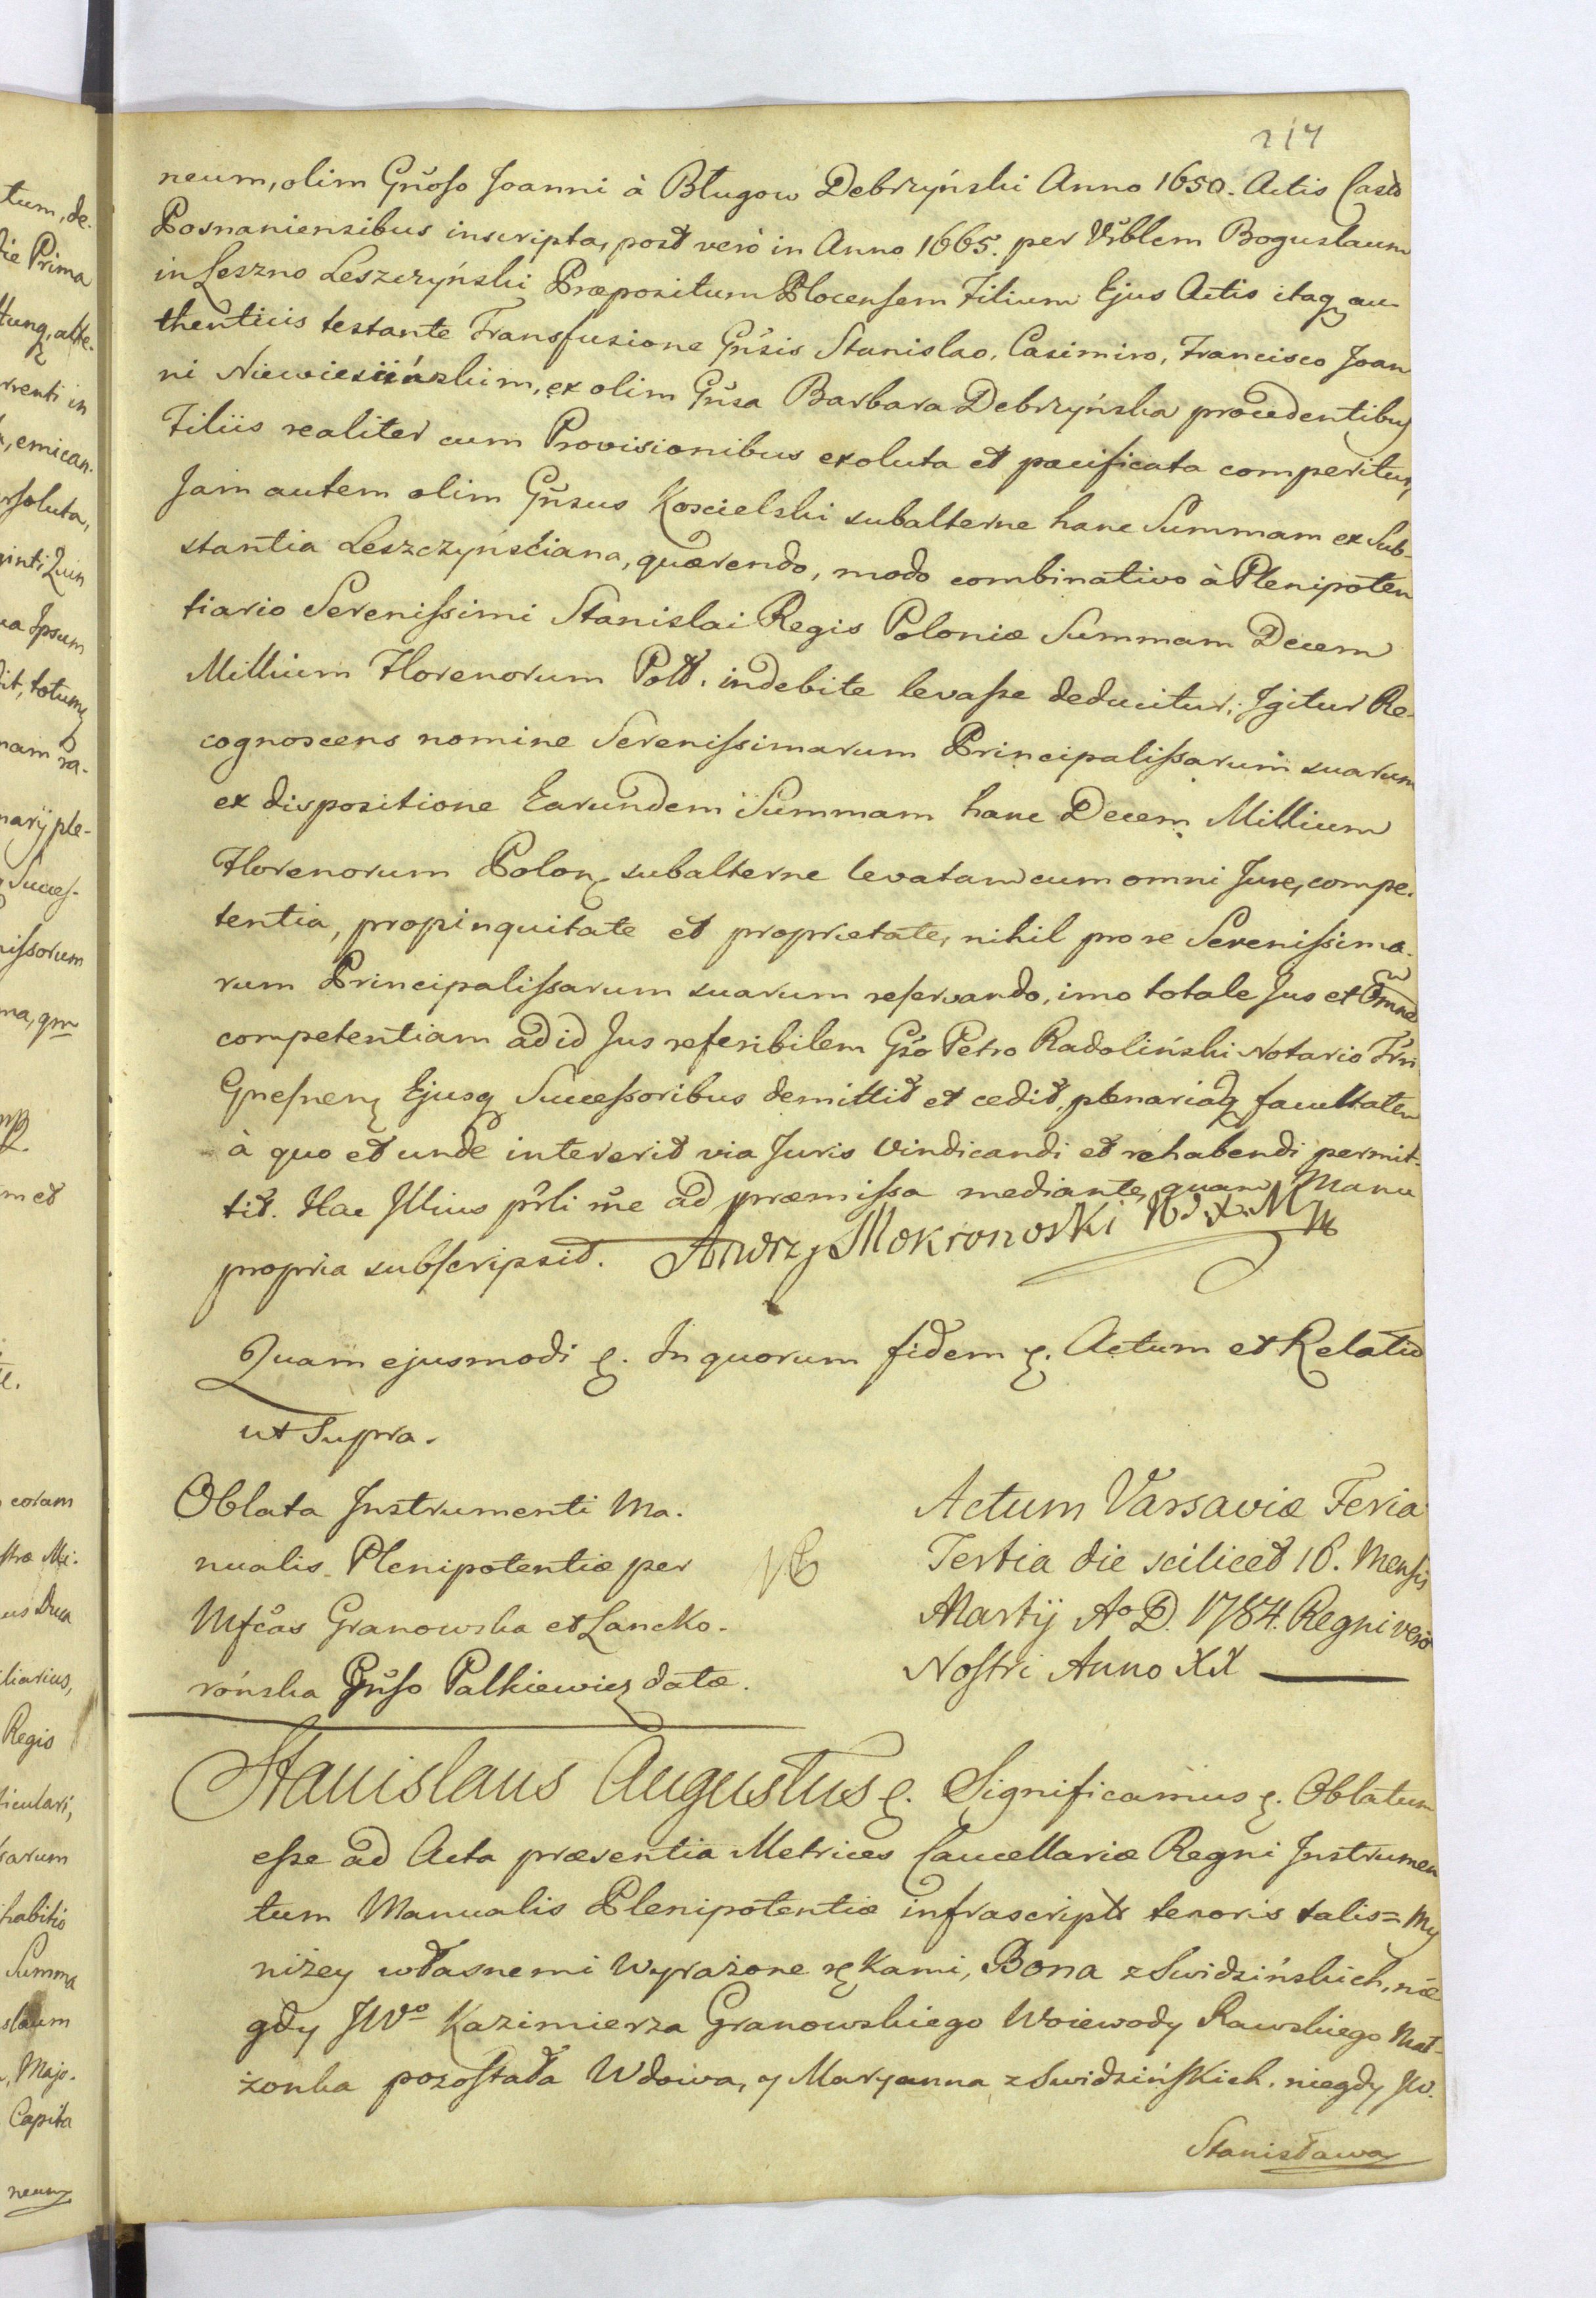 217
neum, olim Gnoso Joanni à Bługow Debrzyński Anno 1650. Actis Castr
Posnaniensibus inscripta, post verò in Anno 1665. per Vrblem Boguslaum
in Leszno Leszczyński Præpositum Plocensem Filium Ejus Actis itaq au-
thenticis testante Transfusione Gnsis Stanislao, Casimiro, Francisco Joan
ni Niewiesiińskim, ex olim Gnsa Barbara Debrzyńska procedentibus
Filiis realiter cum Provisionibus exoluta et pacificata comperitur,
Jam autem olim Gnsus Koscielski subalterne hanc Summam ex Sub-
stantia Leszczynsciana, quærendo, modo combinativo à Plenipoten
tiario Serenissimi Stanislai Regis Poloniæ Summam Decem
Millium Florenorum Poll. indebite levasse deducitur; Igitur Re-
cognoscens nomine Serenissimarum Principalissarum suarum
ex dispositione Earundem Summam hanc Decem Millium
Florenorum Polon. subalterne levatam cum omni Jure, compe-
tentia, propinquitate et proprietate, nihil pro se Serenissima-
rum Principalissarum suarum reservando, imo totale Jus et Omne
competentiam ad id Jus referibilem Gso Petro Radoliński Notario Trri
Gnesnen Ejusq Successoribus demittit et cedit, plenariaq facultatem
à quo et unde intererit via Juris vindicandi et rehabendi permit-
tit. Hac Illius prli me ad præmissa mediante, quam Manu
propria subscripsit. Andrzy Mokronoski
Quam ejusmodi &. In quorum fidem &. Actum et Relatio
ut Supra.
Oblata Instrumenti Ma-
nualis Plenipotentiæ per
Mfcas Granowska et Lancko-
rońska Gnso Palkiewicz datæ.
Actum Varsaviæ Feria
Tertia die scilicet 16. Mensis
Martij Ao D. 1784. Regni vero
Nostri Anno XX
Stanislaus Augustus &. Significamus &. Oblatum
esse ad Acta præsentia Metrices Cancellariæ Regni Instrumen
tum Manualis Plenipotentiæ infrascripti tenoris talis = My
niżey własnemi wyrażone rękami, Bona z Swidzińskich, nie
gdy JWo Kazimierza Granowskiego Woiewody Rawskiego Mał-
żonka pozostała Wdowa, y Maryanna z Swidzińskich. niegdy JW.
Stanisława